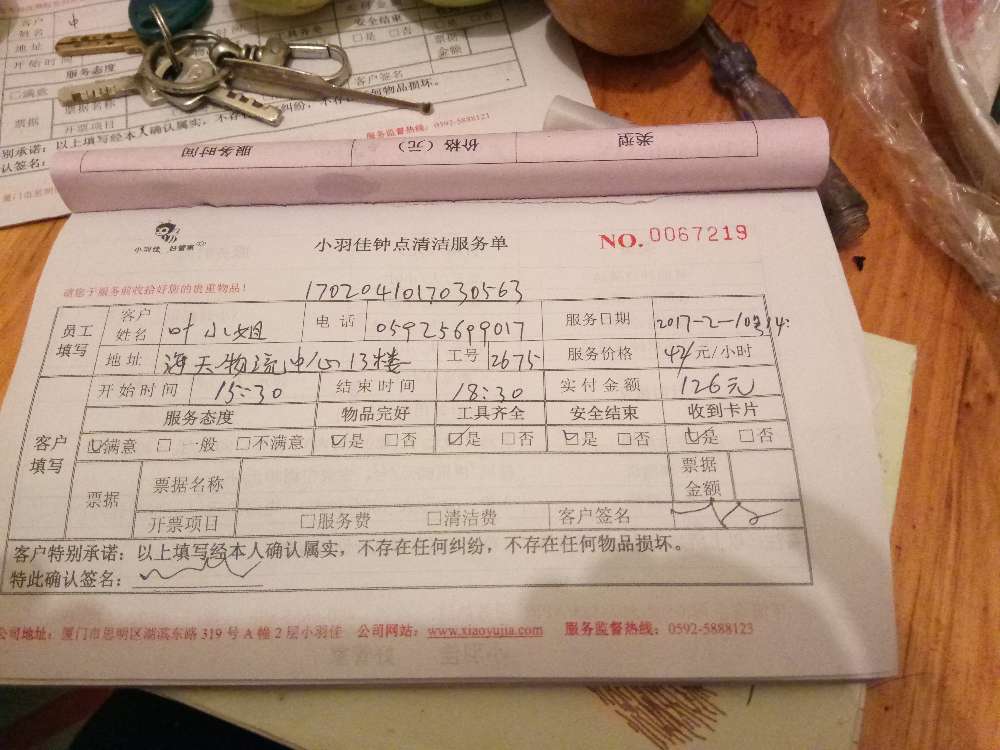 客户
姓名
中
地址
工具齐全
安全结束
□是 □否
票据
金额
开始时间
服务态度
□满意
客户签名
票据
票据名称
开票项目
以上填写经本人确认属实，不存在任何纠纷，不存在任何物品损坏。
别承诺：
认签名：
服务监督热线：0592-5888123
厦门市思明
类型 价格（元） 服务时间
小羽佳 好管家
小羽佳钟点清洁服务单
NO.0067219
请您于服务前收拾好您的贵重物品！
1702041017030563
员工填写 客户姓名 叶小姐 电话 05925699017 服务日期 2017-2-10
地址 海天物流中心13楼 工号 2675 服务价格 42/元/小时
客户填写 开始时间 15:30 结束时间 18:30 实付金额 126元
服务态度 物品完好 工具齐全 安全结束 收到卡片
☑满意 □一般 □不满意 ☑是 □否 ☑是 □否 ☑是 □否 ☑是 □否
票据 票据名称 票据金额
开票项目 □服务费 □清洁费 客户签名
客户特别承诺：以上填写经本人确认属实，不存在任何纠纷，不存在任何物品损坏。
特此确认签名：
公司地址：厦门市思明区湖滨东路319号A幢2层小羽佳 公司网站：www.xiaoyujia.com 服务监督热线：0592-5888123